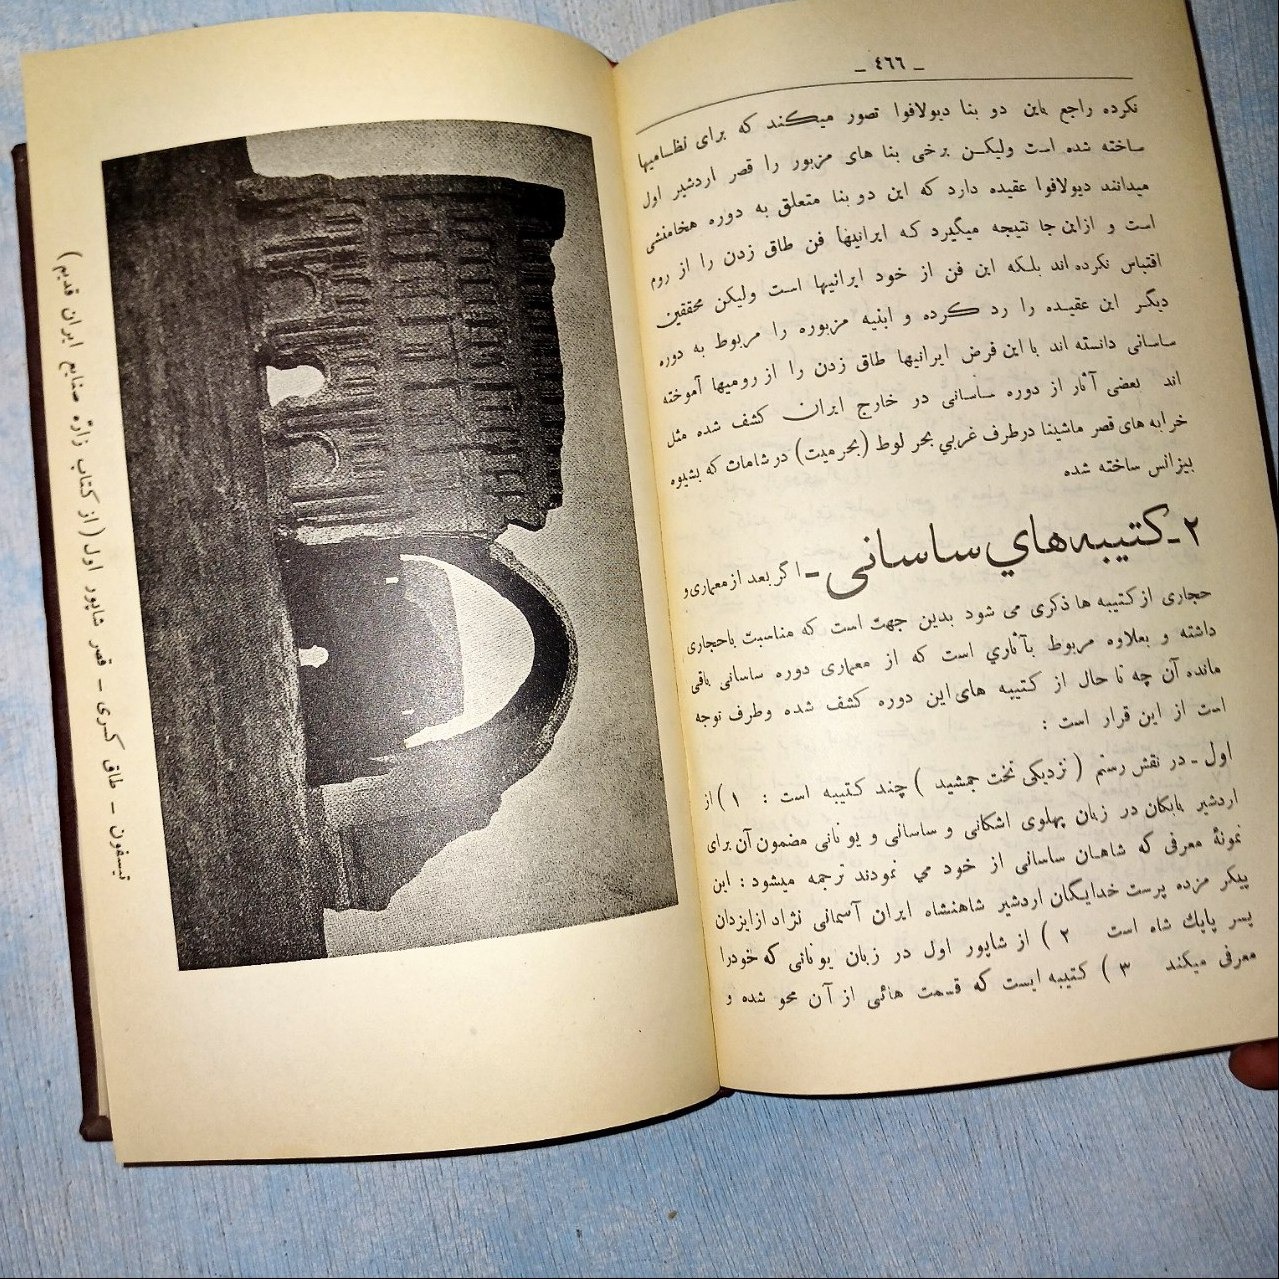 ـ ٤٦٦ ـ
نکرده راجع باین دو بنا دیولافوا تصور میکند که برای نظامیها
ساخته شده است ولیکن برخی بنا های مزبور را قصر اردشیر اول
میدانند دیولافوا عقیده دارد که این دو بنا متعلق به دوره هخامنشی
است و ازاین جا نتیجه میگیرد که ایرانیها فن طاق زدن را از روم
اقتباس نکرده اند بلکه این فن از خود ایرانیها است ولیکن محققین
دیگر این عقیده را رد کرده و ابنیه مزبوره را مربوط به دوره
ساسانی دانسته اند با این فرض ایرانیها طاق زدن را از رومیها آموخته
اند بعضی آثار از دوره ساسانی در خارج ایران کشف شده مثل
خرابه های قصر ماشیتا درطرف غربي بحر لوط (بحر میت) در شامات که بشیوه
بیزانس ساخته شده
۲ـ کتیبه های ساسانی ـ اگر بعد از معماری و
حجاری از کتیبه ها ذکری می شود بدین جهت است که مناسبت باحجاری
داشته و بعلاوه مربوط بآثاري است که از معماری دوره ساسانی باقی
مانده آن چه تا حال از کتیبه های این دوره کشف شده وطرف توجه
است از این قرار است :
اول ـ در نقش رستم ( نزدیکی تخت جمشید ) چند کتیبه است : ۱ ) از
اردشیر بابکان در زبان پهلوی اشکانی و ساسانی و یونانی مضمون آن برای
نمونهٔ معرفی که شاهان ساسانی از خود می نمودند ترجمه میشود : این
پیکر مزده پرست خدایگان اردشیر شاهنشاه ایران آسمانی نژاد ازایزدان
پسر پاپك شاه است ۲ ) از شاپور اول در زبان یونانی که خودرا
معرفی میکند ۳ ) کتیبه ایست که قسمت هائی از آن محو شده و
تیسفون ـ طاق کسری ـ قصر شاپور اول (از کتاب زارّه صنایع ایران قدیم)